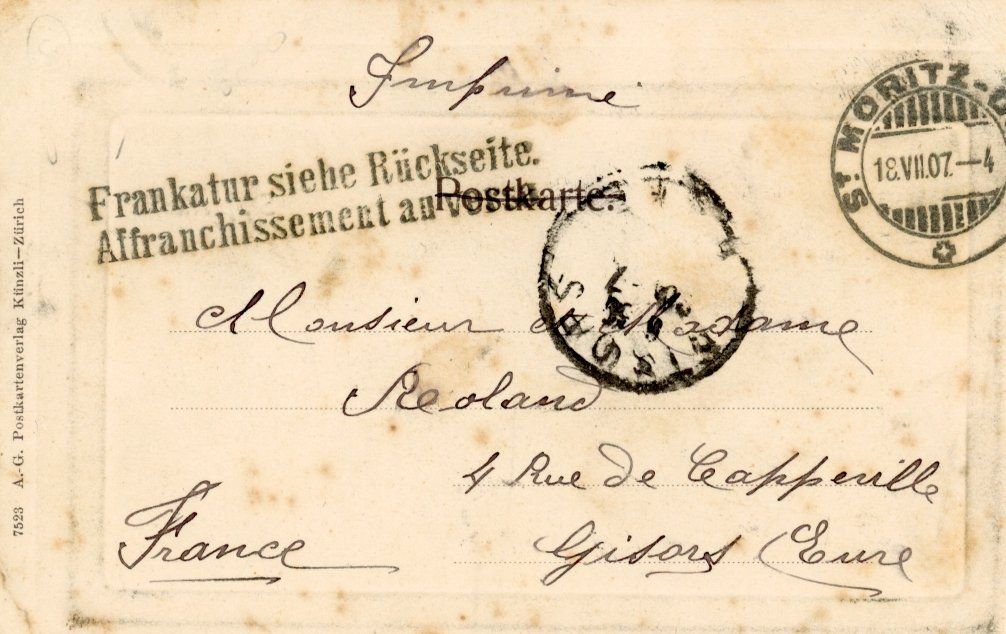 Imprimé
Frankatur siehe Rückseite.
Affranchissement au verso
Postkarte.
ST MORITZ-
18.VII.07.-4
Monsieur et Madame
Reoland
4 Rue de Capperville
Gisors (Eure
France
7523 A.-G. Postkartenverlag Künzli-Zürich